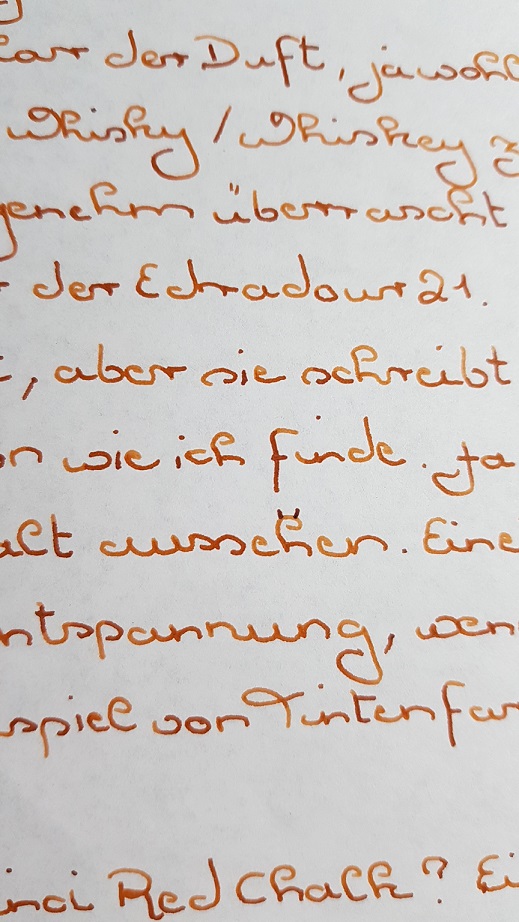 der Duft, jawohl
Whisky / Whiskey
genehm überrascht
der Edradour 21.
, aber sie schreibt
wie ich finde. Ja
alt aussehen. Eine
ntspannung, wen
spiel von Tintenfar
inci Red Chalk? Ei